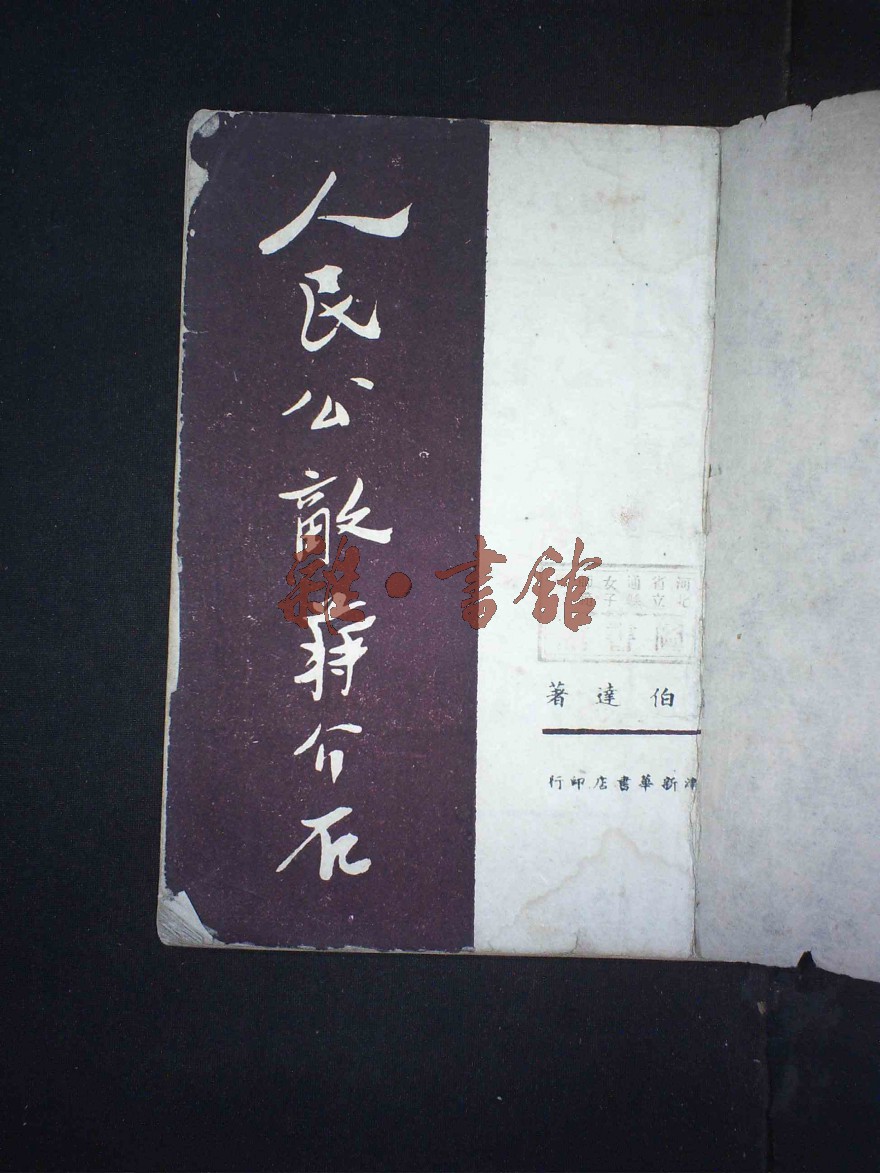 人民公敵蔣介石
雜·書館
河北
省立
通縣
女子
伯達著
津新華書店印行